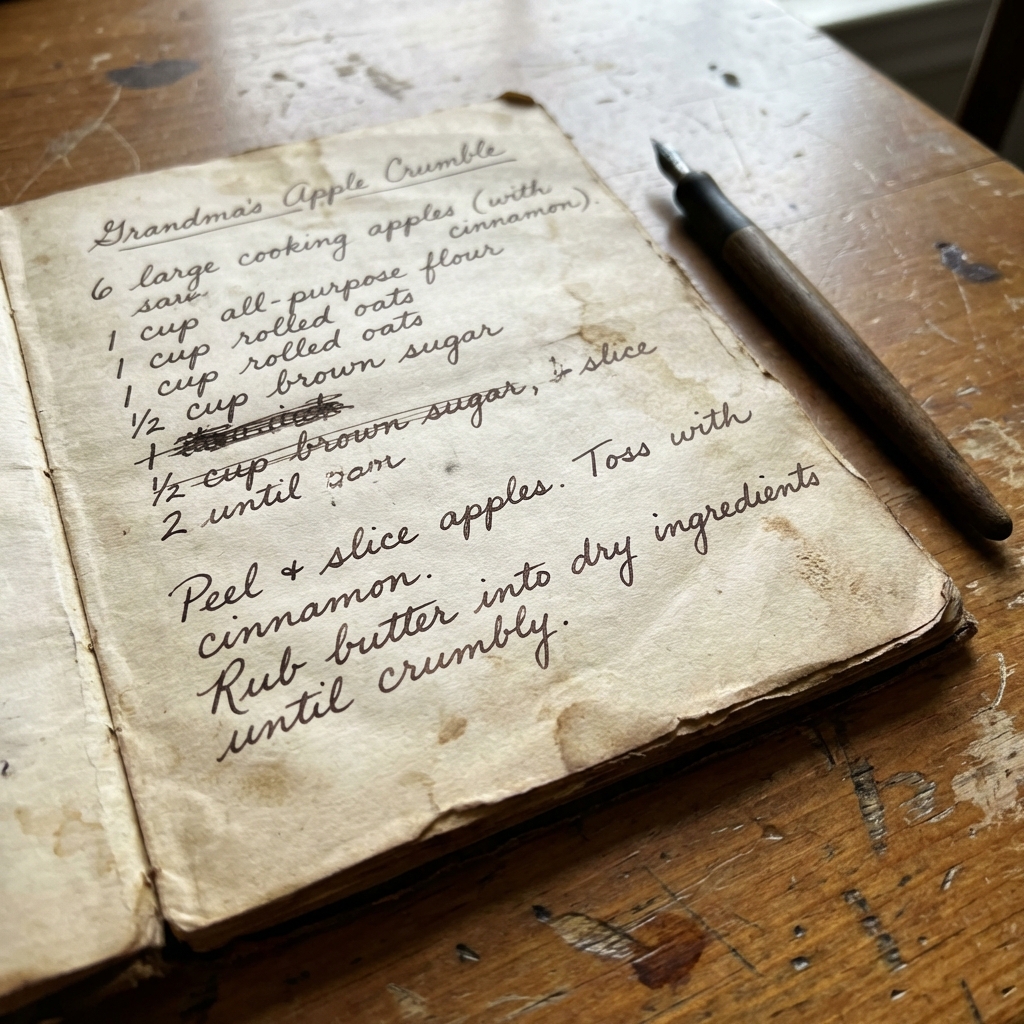 Grandma's Apple Crumble
6 large cooking apples (with
cinnamon).
1 cup all-purpose flour
1 cup rolled oats
1 cup rolled oats
½ cup brown sugar
1
½ cup brown sugar, & slice
2 until
Peel & slice apples. Toss with
cinnamon.
Rub butter into dry ingredients
until crumbly.